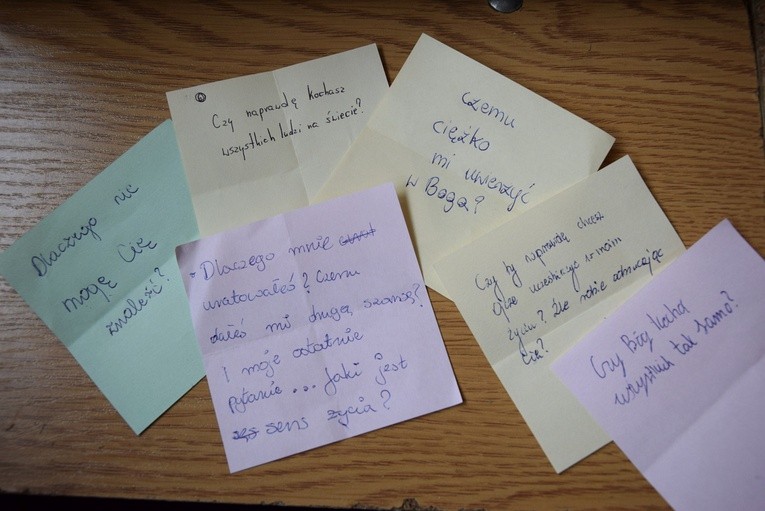 Dlaczego nie
mogę Cię
znaleść?
Czy naprawdę kochasz
wszystkich ludzi na świecie?
Czemu
ciężko
mi uwierzyć
w Boga?
- Dlaczego mnie
uratowałeś? Czemu
dałeś mi drugą szansę?
I moje ostatnie
pytanie... jaki jest
sens życia?
Czy ty naprawdę chcesz
życiu? Źle robię odrzucając
Cię?
Czy Bóg kocha
wszystkich tak samo?